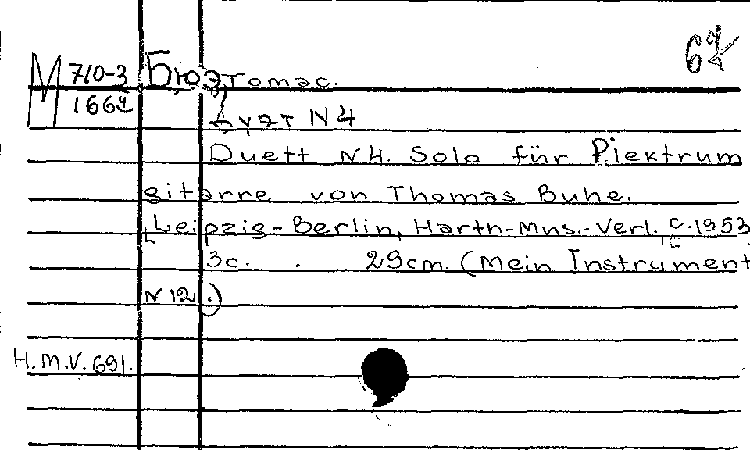 М 710-3
1662
Бюэ Томас.
Дуэт N4
Duett N4. Solo für Plektrum
gitarre von Thomas Buhe.
[Leipzig-Berlin, Hartn-Mus.-Verl. c.1953]
3c. 29cm. (Mein Instrument
N 12.)
H.M.V. 691.